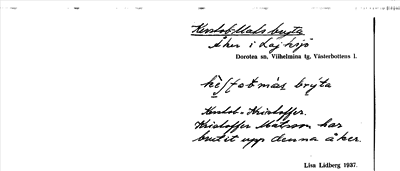 Kristof-Mats bryta
Åker i Lajksjö
Dorotea sn, Vilhelmina tg, Västerbottens l.
brýta
Kristof = Kristoffer.
Kristoffer Matsson har
brutit upp denna åker.
Lisa Lidberg 1937.